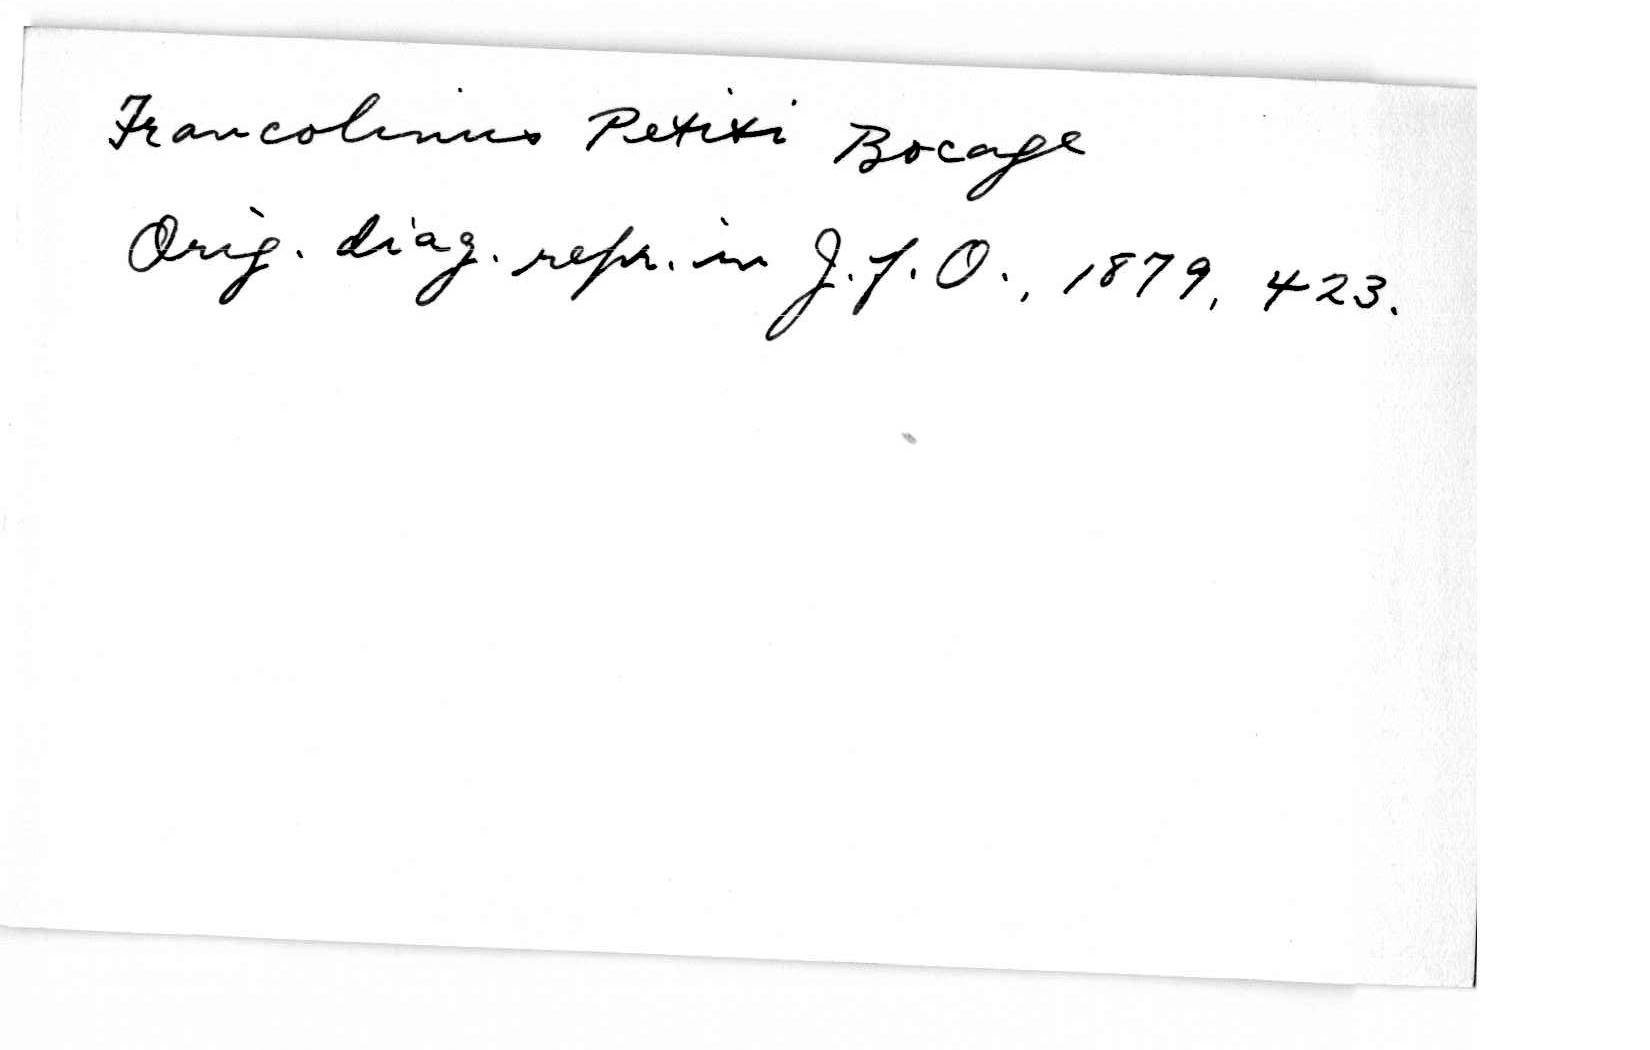 Francolinus Petiti Bocage
Orig. diag. repr. in J. f. O., 1879, 423.